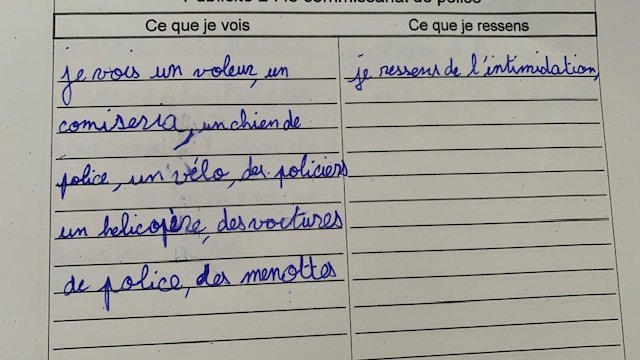 Publicité 2 : le commissariat de police
Ce que je vois
Ce que je ressens
je vois un voleur, un
comiseria, un chien de
police, un vélo, des policiers
un helicopère, des voitures
de police, des menottes
je ressens de l'intimidation,